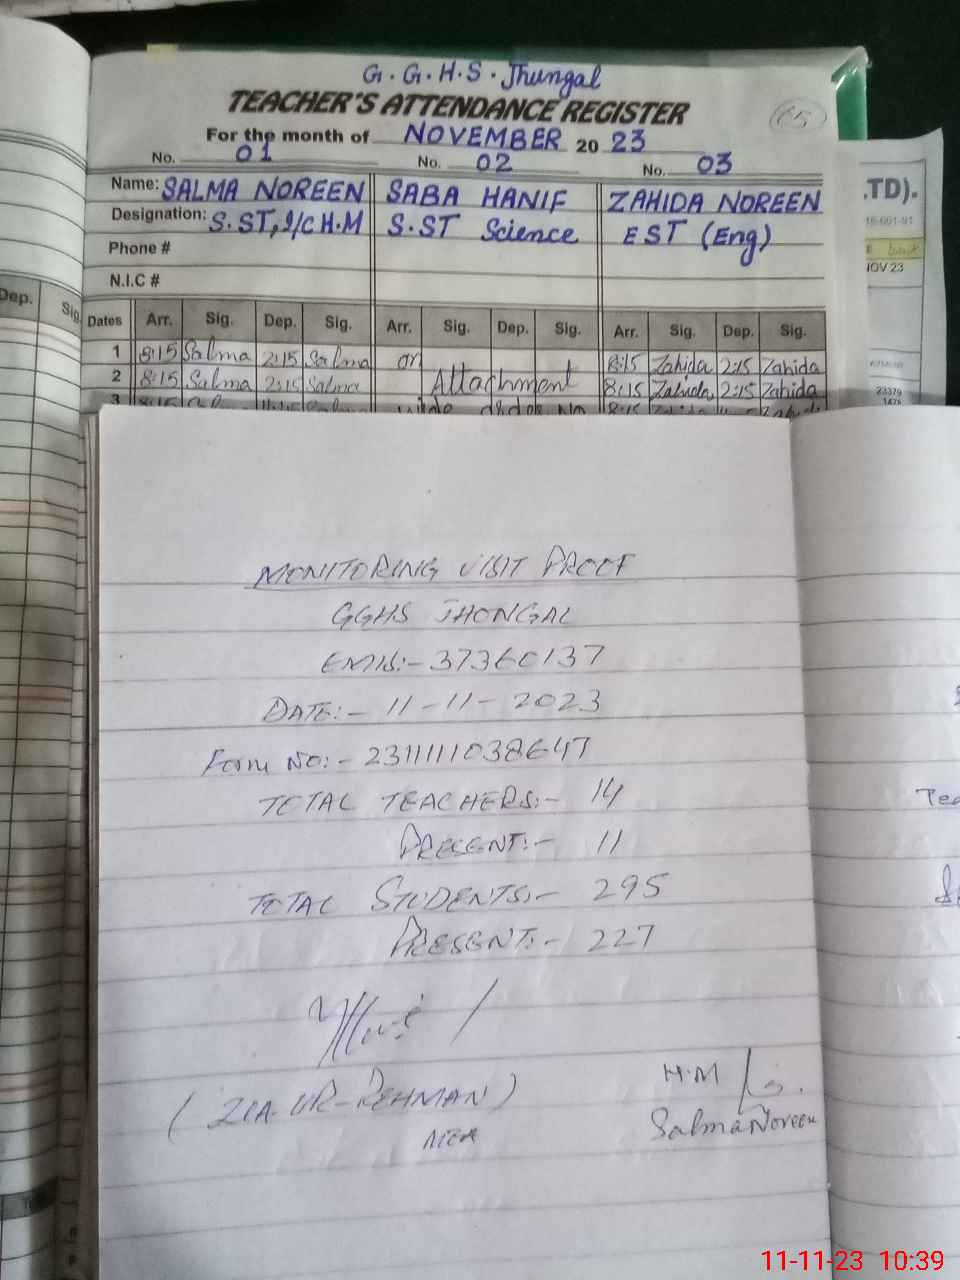 G.G.H.S. Jhungal
TEACHER'S ATTENDANCE REGISTER
65
For the month of NOVEMBER 20 23
No. 01 No. 02 No. 03
Name: SALMA NOREEN SABA HANIF ZAHIDA NOREEN
Designation: S.ST, I/C H.M S.ST Science EST (Eng)
Phone #
N.I.C #
Dates Arr. Sig. Dep. Sig. Arr. Sig. Dep. Sig. Arr. Sig. Dep. Sig.
1 8:15 Salma 2:15 Salma on 8:15 Zahida 2:15 Zahida
2 8:15 Salma 2:15 Salma Attachment 8:15 Zahida 2:15 Zahida
3
Dep. Sig.
LTD).
NOV 23
23379
MONITORING VISIT PROOF
GGHS JHONGAL
EMIS:- 37360137
DATE:- 11-11-2023
Form No:- 2311111038647
TOTAL TEACHERS:- 14
PRESENT:- 11
TOTAL STUDENTS:- 295
PRESENT:- 227
(ZIA-UR-REHMAN)
MEA
H.M
Salma Noreen
11-11-23 10:39